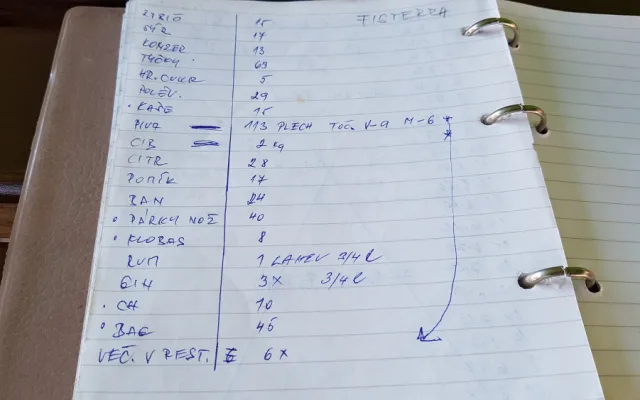 FISTERRA
SÝR 17
KONZER 13
TYČKY 69
HR. CUKR 5
POLÉV. 29
• KAŠE 15
PIVA 113 PLECH TOČ. V-9 M-6 *
CIB 2 kg *
CITR 28
POMÍK 17
BAN 24
• PÁRKY NOŽ 40
• KLOBÁS 8
RUM 1 LAHEV 3/4 l
GIN 3X 3/4 l
• CH 10
• BAG 45
VEČ. V REST. 6 X